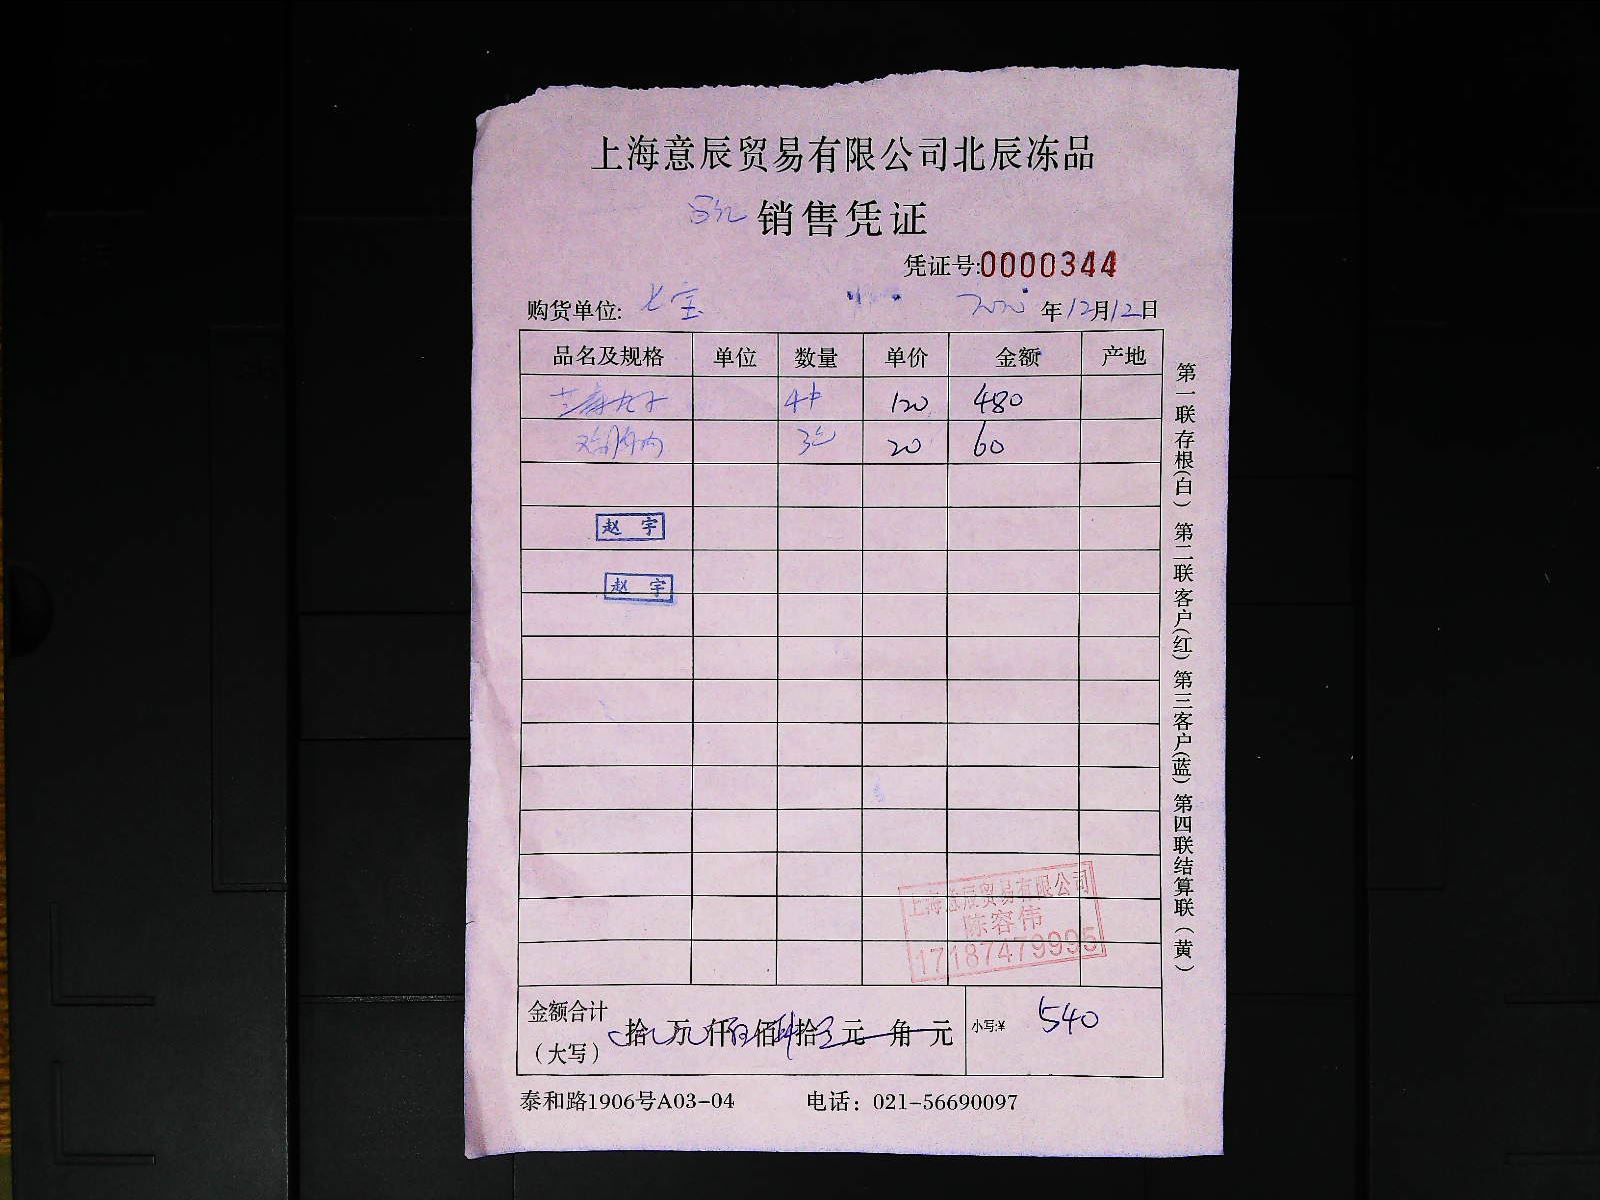 上海意辰贸易有限公司北辰冻品
销售凭证
凭证号:0000344
购货单位: 七宝 年12月12日
品名及规格 单位 数量 单价 金额 产地
4件 120 480
3包 20 60
赵 宇
赵 宇
上海意辰贸易有限公司
陈容伟
17187479995
金额合计
(大写)
拾 万 仟 佰 拾 元 角 元 小写:¥ 540
泰和路1906号A03-04 电话：021-56690097
第一联存根(白) 第二联客户(红) 第三客户(蓝) 第四联结算联(黄)